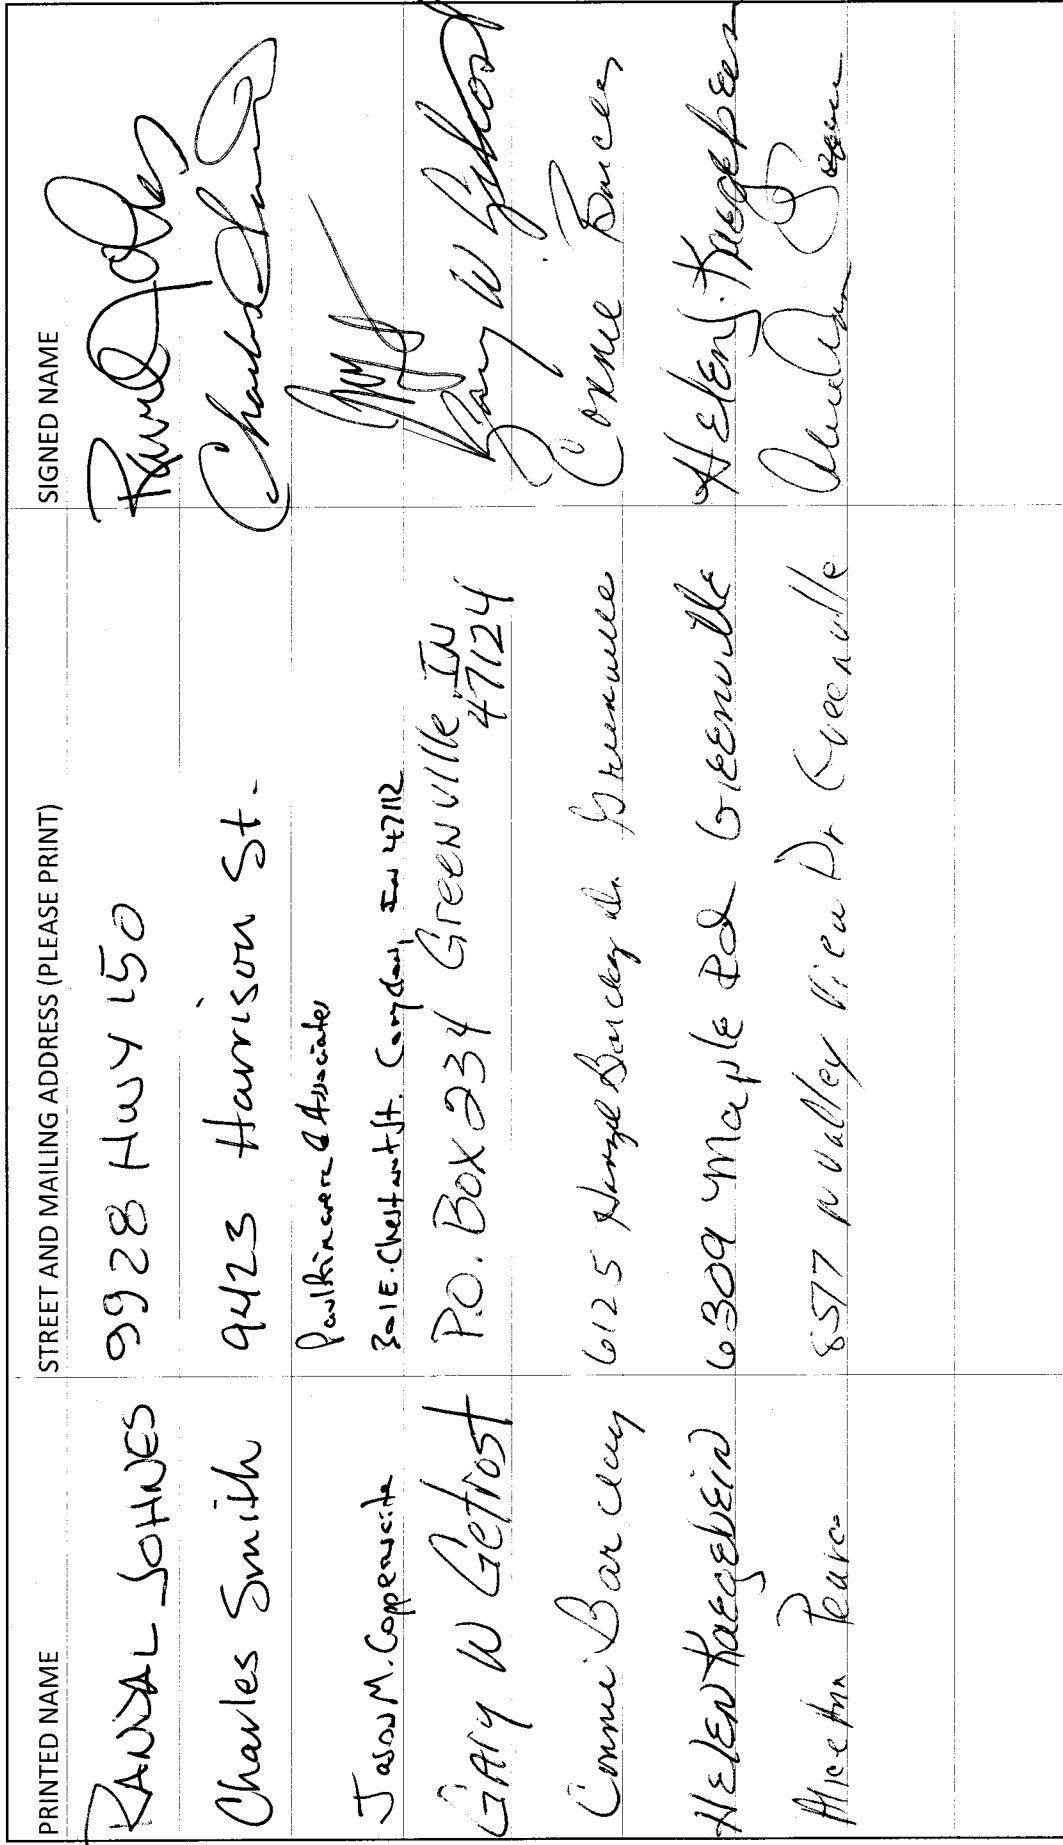 PRINTED NAME STREET AND MAILING ADDRESS (PLEASE PRINT) SIGNED NAME
RANDAL JOHNES 9928 HWY 150
Charles Smith 9423 Harrison St.
Paul Primavera & Associates
Jason M. Copperwaite 301 E. Chestnut St. Corydon, IN 47112
GARY W Getrost P.O. Box 234 Greenville, IN 47124 Gary W Getrost
Connie Barclay 6125 Barclay Dr. Greenville Connie Barclay
HELEN KAEGEBEIN 6309 Maple Rd Greenville Helen J. Kaegebein
Alice Ann Pearce 8577 N Valley View Dr Greenville